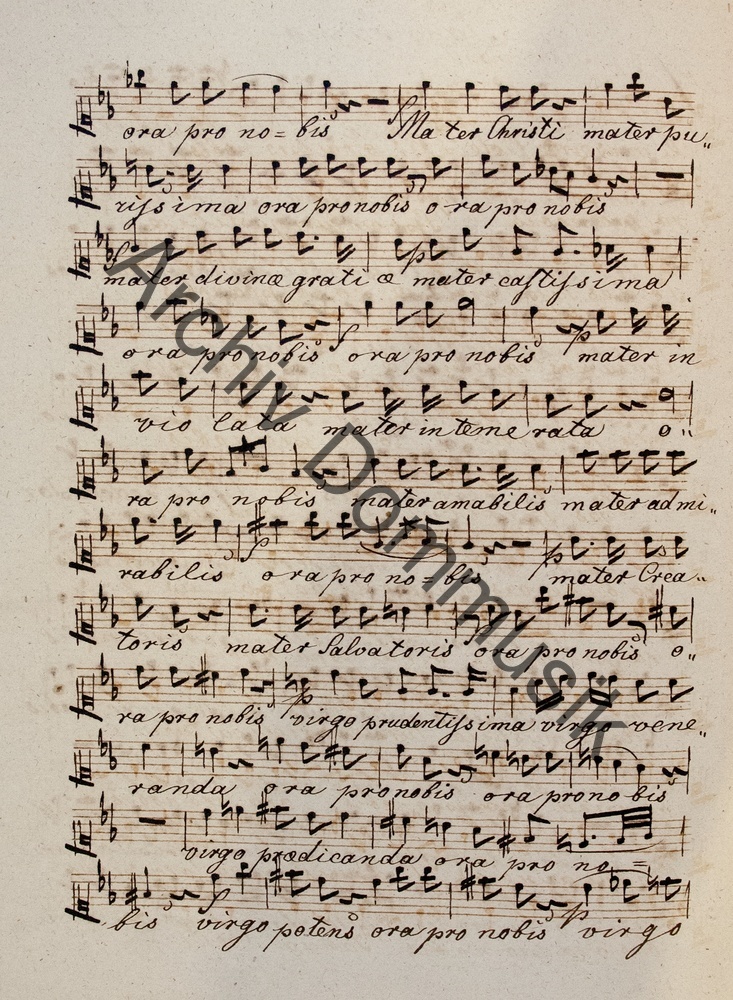 ora pro no = bis Mater Christi mater pu„
rissima ora pro nobis o ra pro nobis
mater divinæ grati æ mater castissima
ora pro nobis ora pro nobis mater in
vio lata mater in teme rata o„
ra pro nobis mater amabilis mater admi„
rabilis ora pro no = bis mater Crea„
toris mater Salvatoris ora pro nobis o„
ra pro nobis virgo prudentissima virgo vene„
randa ora pro nobis ora pro no bis
virgo prædicanda ora pro no =
bis virgo potens ora pro nobis virgo
Archiv Dommusik